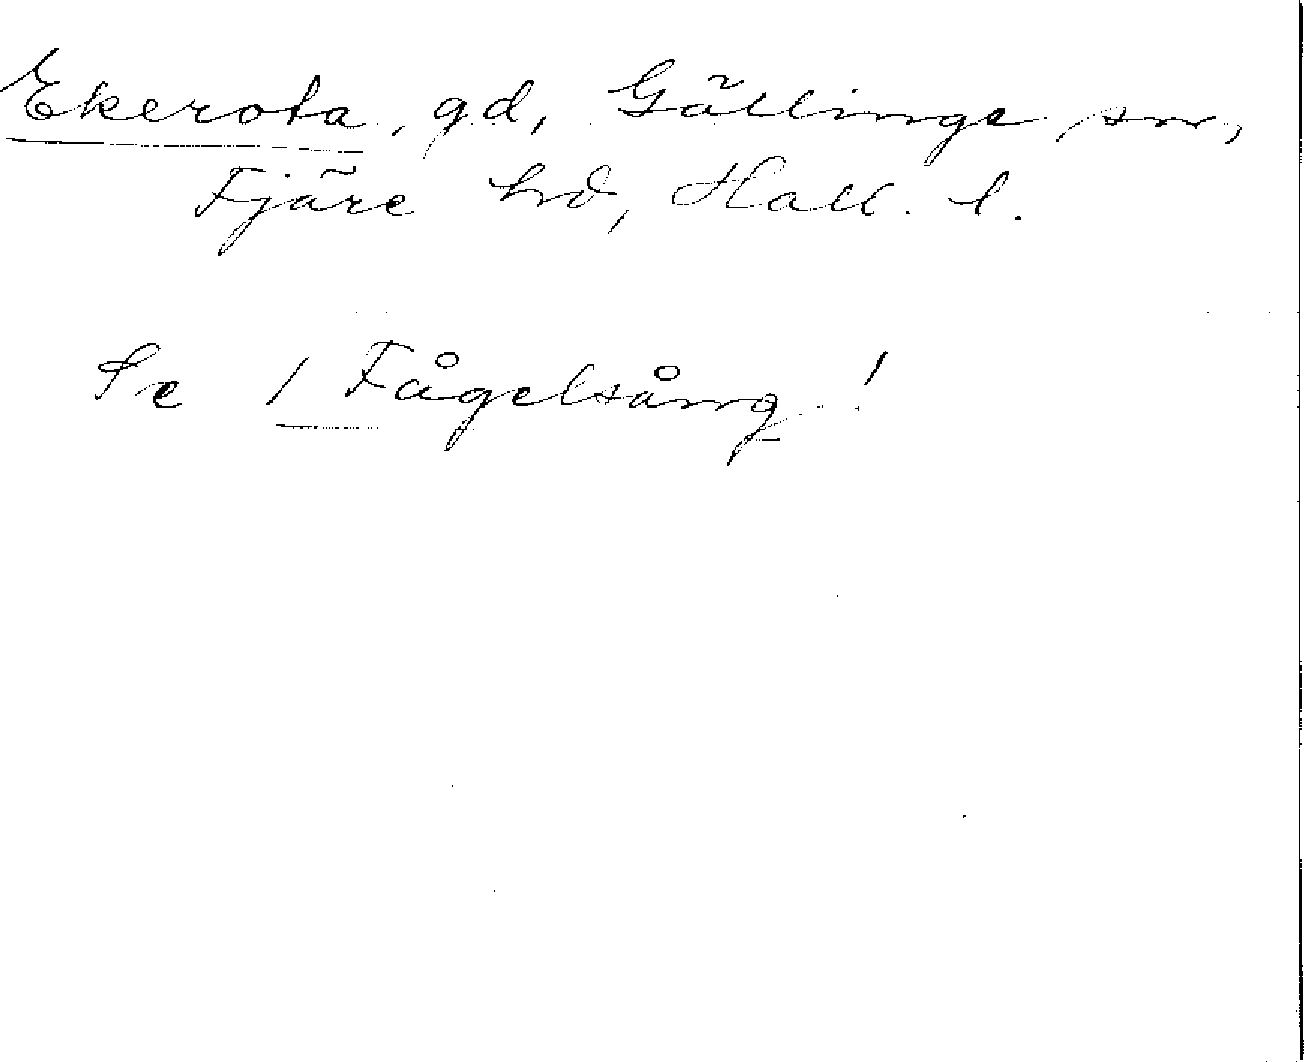 Ekerota, gd, Gällinge sn,
Fjäre hd, Hall. l.
Se 1 Fågelsång!